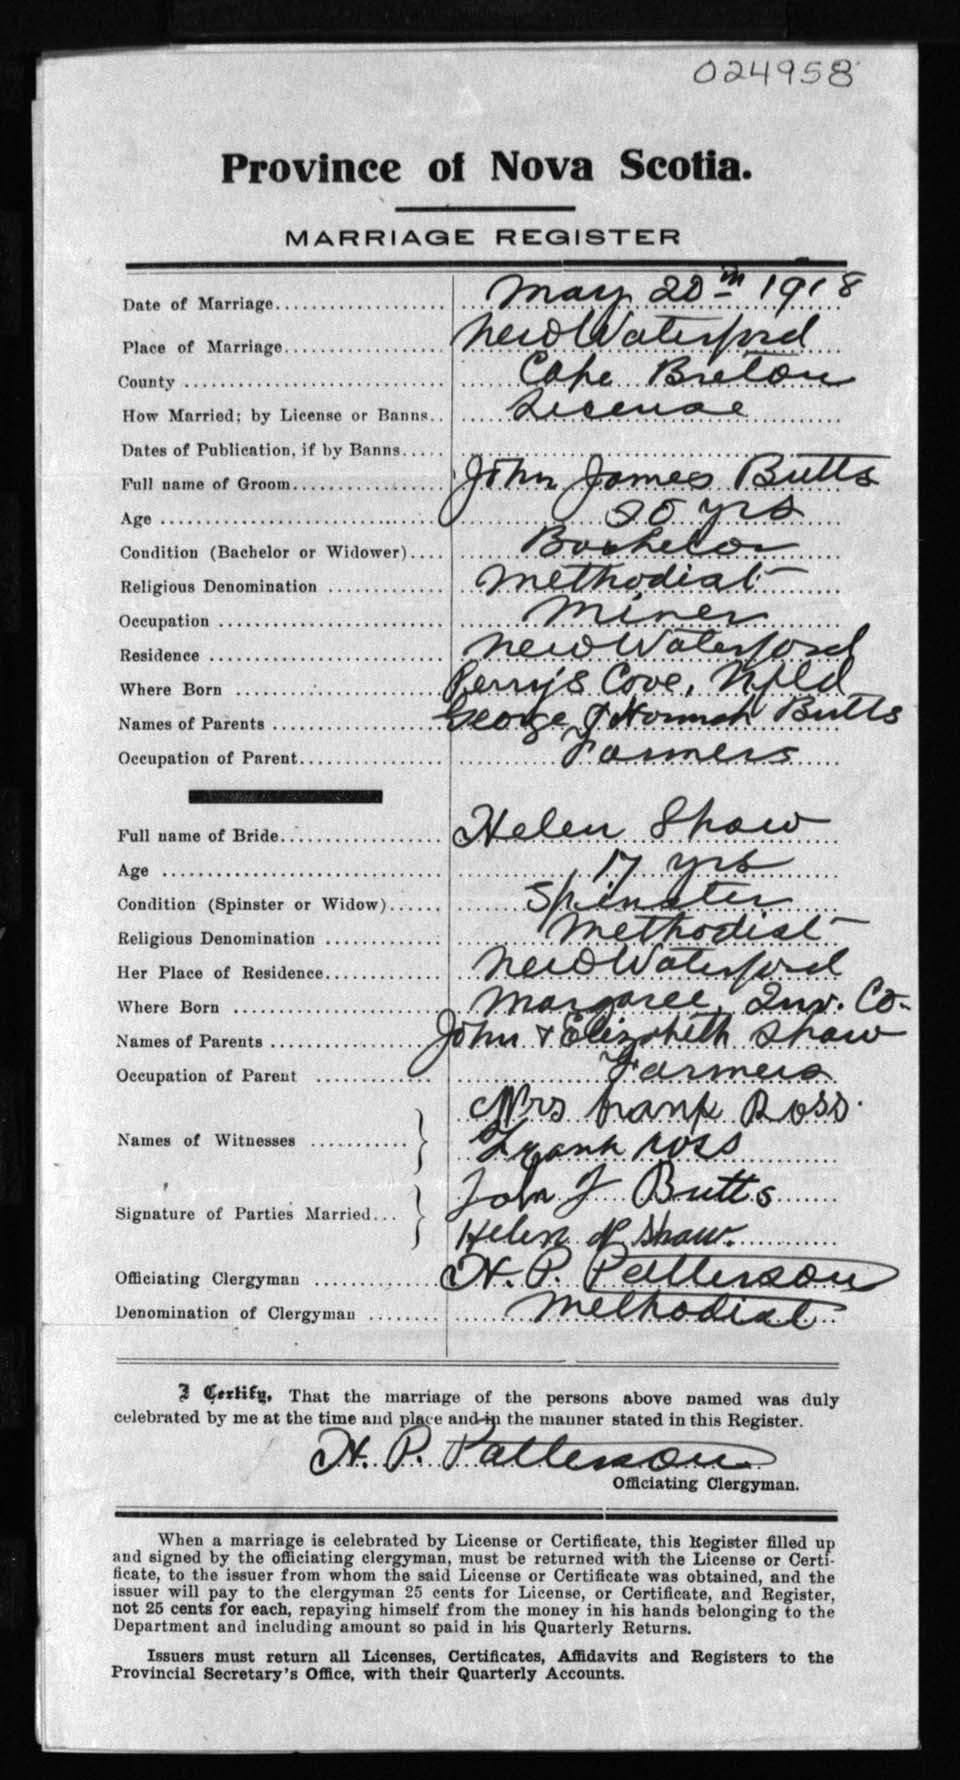 024958
Province of Nova Scotia.
MARRIAGE REGISTER
Date of Marriage May 20th 1918
Place of Marriage New Waterford
County Cape Breton
How Married; by License or Banns License
Dates of Publication, if by Banns
Full name of Groom John James Butts
Age 20 yrs
Condition (Bachelor or Widower) Bachelor
Religious Denomination Methodist
Occupation Miner
Residence New Waterford
Where Born Perrys Cove, Nfld
Names of Parents George & Hannah Butts
Occupation of Parent Farmers
Full name of Bride Helen Shaw
Age 17 yrs
Condition (Spinster or Widow) Spinster
Religious Denomination Methodist
Her Place of Residence New Waterford
Where Born Margaree, Inv. Co.
Names of Parents John & Elizabeth Shaw
Occupation of Parent Farmers
Names of Witnesses } Mrs Frank Ross.
Frank Ross
Signature of Parties Married } John J Butts
Helen Shaw.
Officiating Clergyman H. P. Patterson
Denomination of Clergyman Methodist
I Certify, That the marriage of the persons above named was duly
celebrated by me at the time and place and in the manner stated in this Register.
H. P. Patterson
Officiating Clergyman.
When a marriage is celebrated by License or Certificate, this Register filled up
and signed by the officiating clergyman, must be returned with the License or Certi-
ficate, to the issuer from whom the said License or Certificate was obtained, and the
issuer will pay to the clergyman 25 cents for License, or Certificate, and Register,
not 25 cents for each, repaying himself from the money in his hands belonging to the
Department and including amount so paid in his Quarterly Returns.
Issuers must return all Licenses, Certificates, Affidavits and Registers to the
Provincial Secretary's Office, with their Quarterly Accounts.